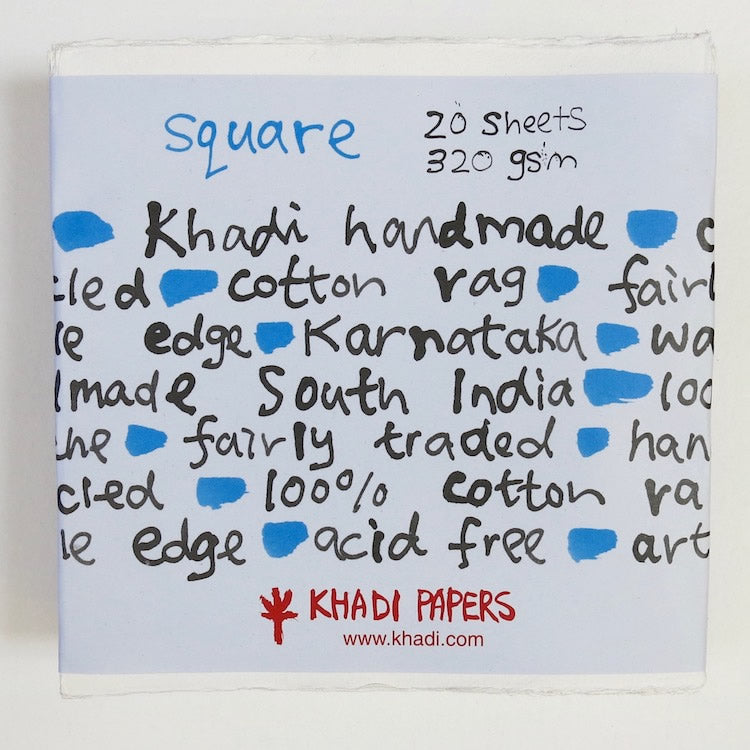 square
20 sheets
320 gsm
Khadi handmade
cled cotton rag fairl
le edge Karnataka wa
made South India 100
the fairly traded han
cled 100% cotton ra
le edge acid free art
KHADI PAPERS
www.khadi.com